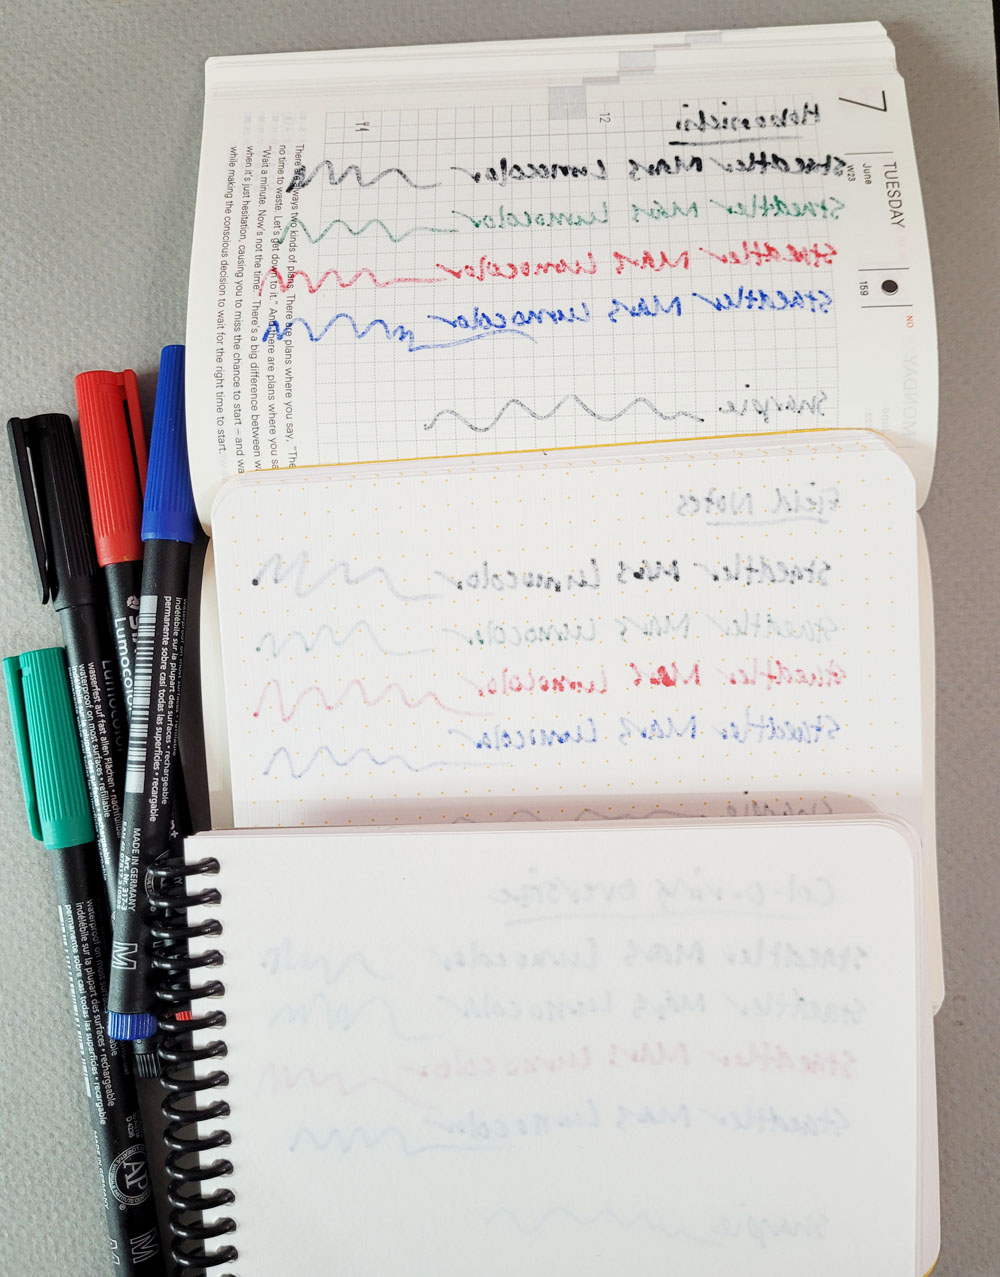 7
TUESDAY
June
W23
159
NO
12
Hobonichi
Staedtler Mars Lumocolor
Staedtler Mars Lumocolor
Staedtler Mars Lumocolor
Staedtler Mars Lumocolor
Sharpie
There are always two kinds of plans. There are plans where you say, "The
no time to waste. Let's get down to it." And there are plans where you sa
"Wait a minute. Now's not the time." There's a big difference between w
when it's just hesitation, causing you to miss the chance to start – and wa
while making the conscious decision to wait for the right time to start.
Field Notes
Staedtler Mars Lumocolor
Staedtler Mars Lumocolor
Staedtler Mars Lumocolor
Staedtler Mars Lumocolor
Col-o-ring oversize
Staedtler Mars Lumocolor
Staedtler Mars Lumocolor
Staedtler Mars Lumocolor
Staedtler Mars Lumocolor
Sharpie
Lumocolor
indélébile sur la plupart des surfaces • rechargeable
permanente sobre casi todas las superficies • recargable
MADE IN GERMANY
Art. Nr. 317-3
M
Lumocolor
wasserfest auf fast allen Flächen • nachfüllbar
waterproof on most surfaces • refillable
M
waterproof on most surfaces
indélébile sur la plupart des surfaces • rechargeable
permanente sobre casi todas las superficies • recargable
AP
M